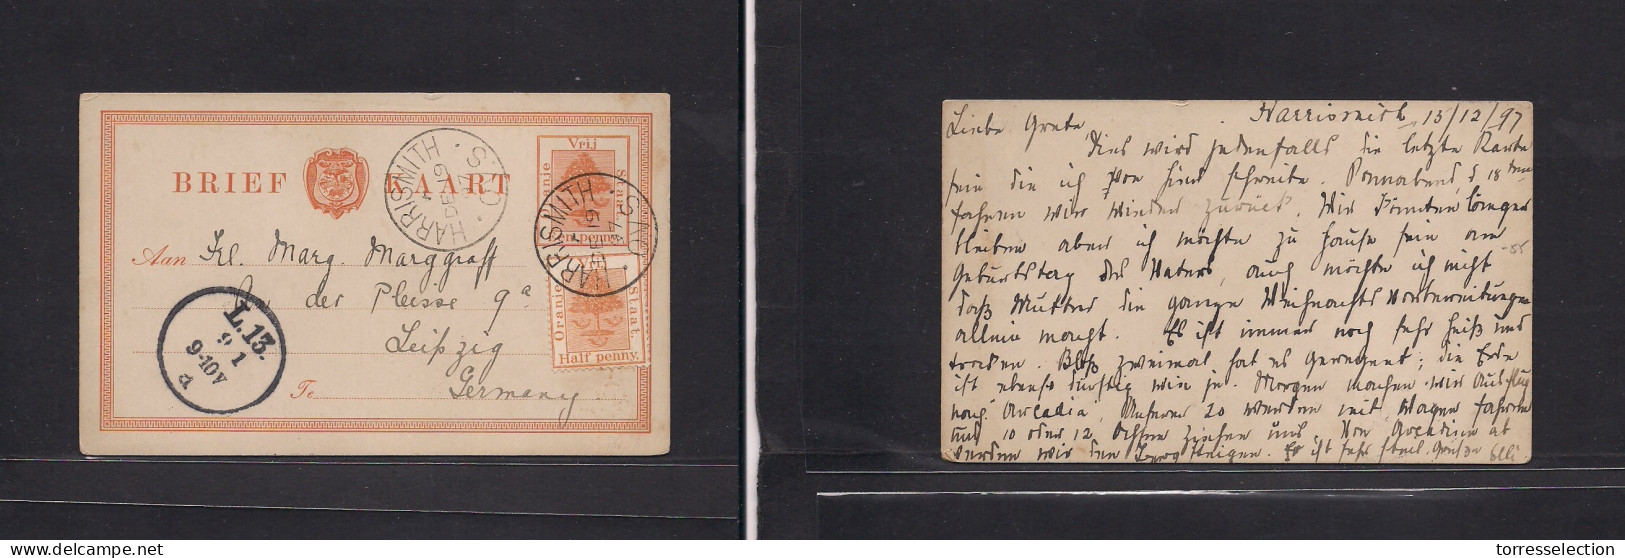 BRIEF KAART
Vrij
Oranje
Staat.
HARRISMITH . O.V.S.
DE 19
97
HARRISMITH
Aan Frl. Marg. Marggraff
An der Pleisse 9a
Leipzig
To Germany
Oranje Staat.
Half penny.
L.13.
9 1
9-10V
a
Harrismith 13/12/97
Liebe Grete
Dies wird jedenfalls die letzte Karte
sein die ich von hier schreibe. Sonnabend, d 18ten
fahren wir wieder zurück. Wir könnten länger
bleiben aber ich möchte zu Hause sein am
Geburtstag des Vaters, auch möchte ich nicht
daß Mutter die ganze Weihnachts Vorbereitungen
allein macht. Es ist immer noch sehr heiß und
trocken. Bloß zweimal hat es geregnet; die Erde
ist ebenso durstig wie je. Morgen machen wir Ausflug
nach 'Arcadia', Unserer 20 werden mit Wagen fahren
und 10 oder 12 Ochsen ziehen uns. Von Arcadia ab
werden wir den Berg steigen. Es ist sehr steil. Grüße
torresselection